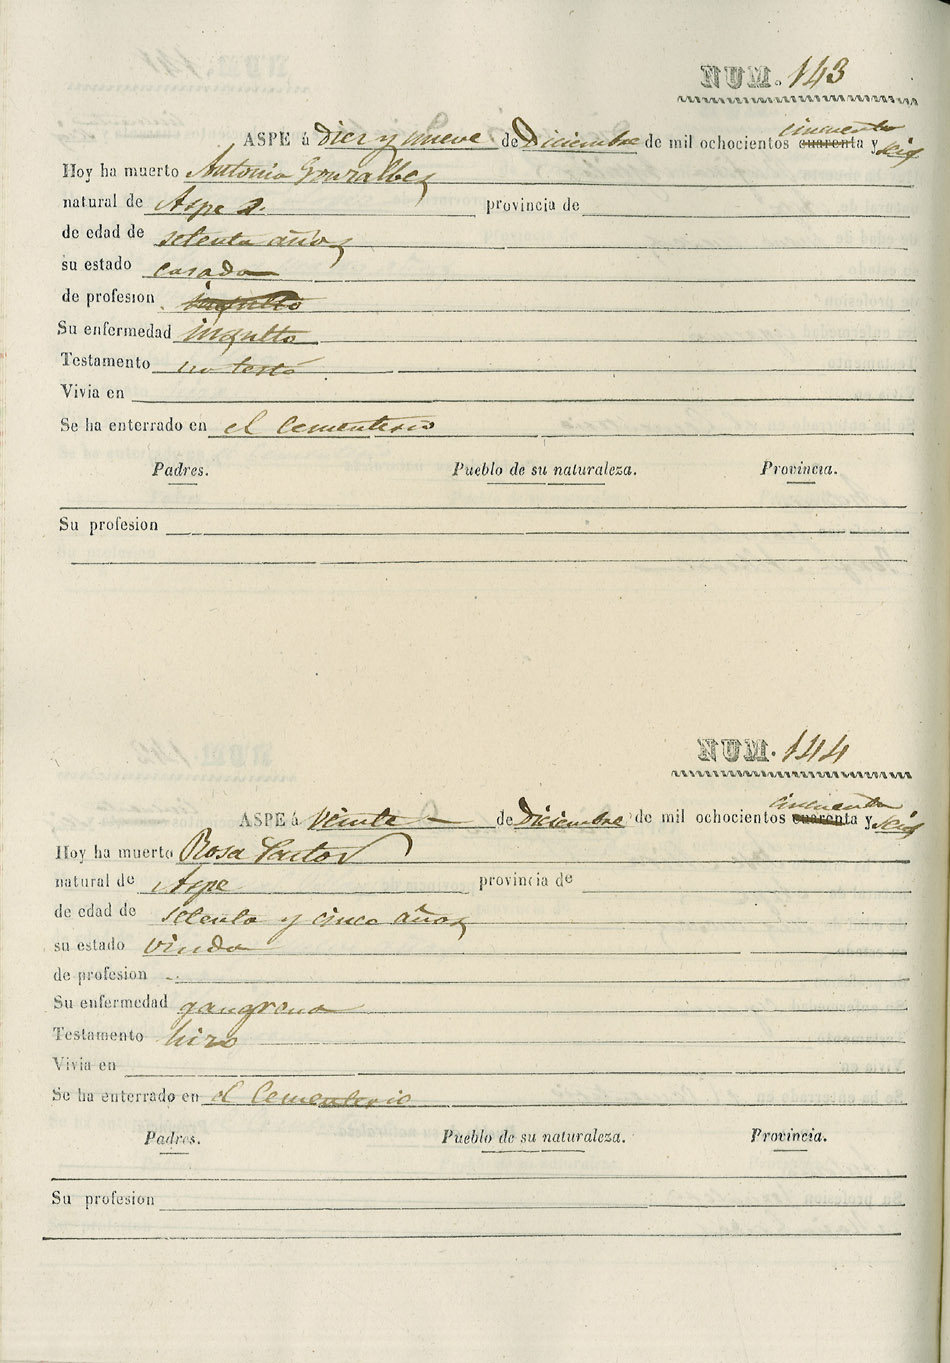 NUM. 143
cincuenta
ASPE á Diez y nueve de Diciembre de mil ochocientos cuarenta y seis
Hoy ha muerto Antonio Gonzalbez
natural de Aspe provincia de
de edad de setenta años
su estado casado
de profesion insulto
Su enfermedad insulto
Testamento no testó
Vivia en
Se ha enterrado en el Cementerio
Padres. Pueblo de su naturaleza. Provincia.
Su profesion
NUM. 144
cincuenta
ASPE á Veinte de Diciembre de mil ochocientos cuarenta y seis
Hoy ha muerto Rosa Pastor
natural de Aspe provincia de
de edad de setenta y cinco años
su estado viuda
de profesion
Su enfermedad gangrena
Testamento hizo
Vivia en
Se ha enterrado en el Cementerio
Padres. Pueblo de su naturaleza. Provincia.
Su profesion